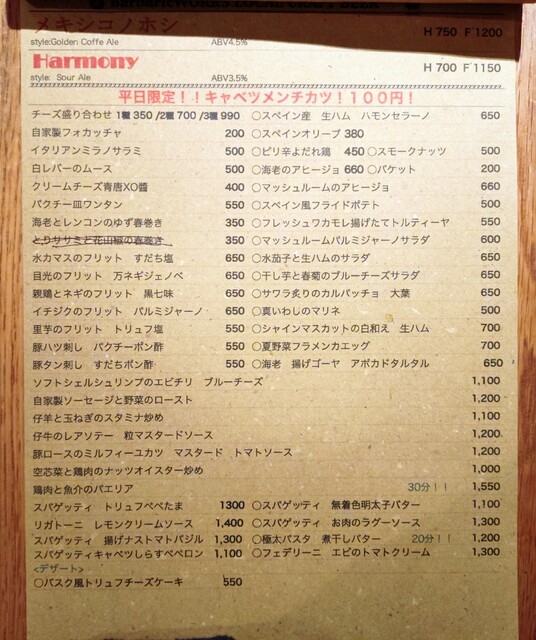 BarbaricWORKS LOCAL CRAFT BEER
メキシコノホシ H 750 F 1200
style:Golden Coffe Ale ABV4.5%
Harmony H 700 F 1150
style: Sour Ale ABV3.5%
平日限定！！キャベツメンチカツ！１００円！
チーズ盛り合わせ 1種 350 /2種 700 /3種 990 〇スペイン産 生ハム ハモンセラーノ 650
自家製フォカッチャ 200 〇スペインオリーブ 380
イタリアンミラノサラミ 500 〇ピリ辛よだれ鶏 450 〇スモークナッツ 500
白レバーのムース 500 〇海老のアヒージョ 660 〇バケット 200
クリームチーズ青唐XO醬 400 〇マッシュルームのアヒージョ 660
パクチー皿ワンタン 550 〇スペイン風フライドポテト 500
海老とレンコンのゆず春巻き 350 〇フレッシュワカモレ揚げたてトルティーヤ 550
とりササミと花山椒の春巻き 350 〇マッシュルームパルミジャーノサラダ 600
水カマスのフリット すだち塩 650 〇水茄子と生ハムのサラダ 650
目光のフリット 万ネギジェノベ 650 〇干し芋と春菊のブルーチーズサラダ 650
親鶏とネギのフリット 黒七味 650 〇サワラ炙りのカルパッチョ 大葉 650
イチジクのフリット パルミジャーノ 650 〇真いわしのマリネ 500
里芋のフリット トリュフ塩 550 〇シャインマスカットの白和え 生ハム 700
豚ハツ刺し パクチーポン酢 550 〇夏野菜フラメンカエッグ 700
豚タン刺し すだちポン酢 550 〇海老 揚げゴーヤ アボカドタルタル 650
ソフトシェルシュリンプのエビチリ ブルーチーズ 1,100
自家製ソーセージと野菜のロースト 1,200
仔羊と玉ねぎのスタミナ炒め 1,100
仔牛のレアソテー 粒マスタードソース 1,200
豚ロースのミルフィーユカツ マスタード トマトソース 1,200
空芯菜と鶏肉のナッツオイスター炒め 1,000
鶏肉と魚介のパエリア 30分！！ 1,550
スパゲッティ トリュフペペたま 1300 〇スパゲッティ 無着色明太子バター 1,100
リガトーニ レモンクリームソース 1,400 〇スパゲッティ お肉のラグーソース 1,300
スパゲッティ 揚げナストマトバジル 1,300 〇極太パスタ 煮干しバター 20分！！ 1,200
スパゲッティキャベツしらすペペロン 1,100 〇フェデリーニ エビのトマトクリーム 1,300
<デザート>
〇バスク風トリュフチーズケーキ 550